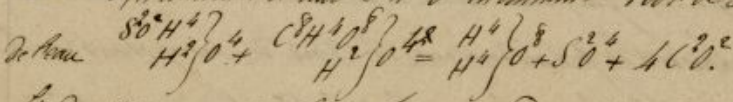 de l'eau S²O²H⁴ / H² } O⁴ + C⁸H⁴O⁸ / H² } O⁴ = H⁴ / H⁴ } O⁸ + S²O⁴ + 4C²O².